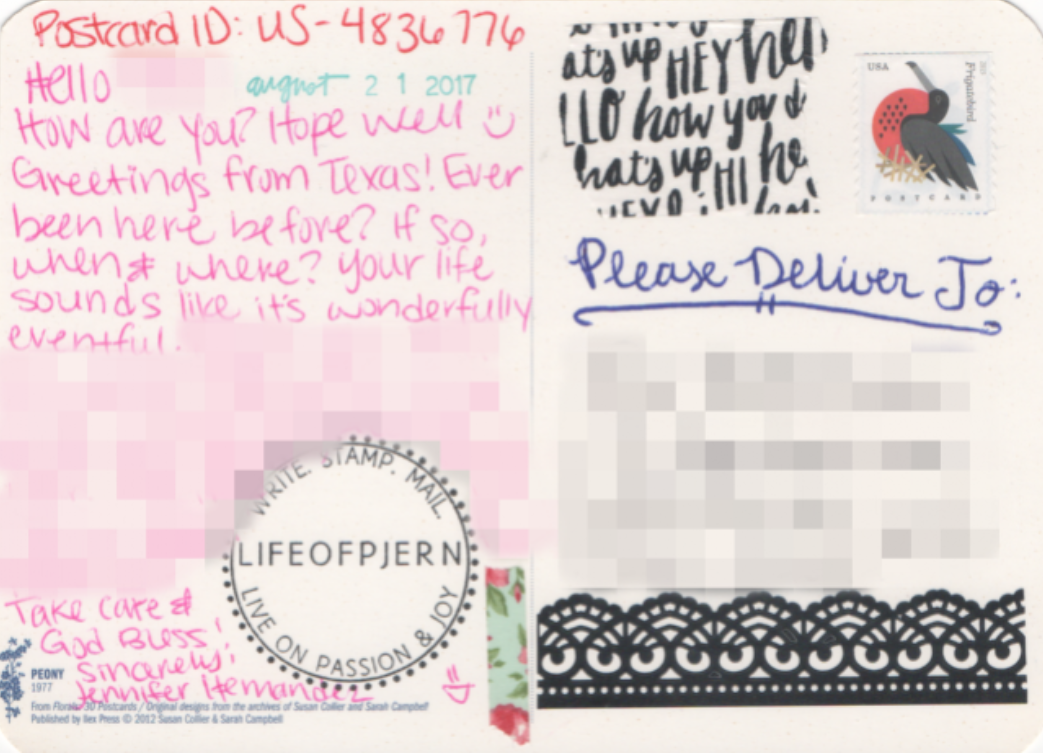 Postcard ID: US-4836776
Hello
august 21 2017
How are you? Hope well
Greetings from Texas! Ever
been here before? If so,
when & where? Your life
sounds like it's wonderfully
eventful.
WRITE. STAMP. MAIL.
LIFEOFPJERN
LIVE ON PASSION & JOY
Take care &
God Bless!
Sincerely,
Jennifer Hernandez
PEONY
1977
From Florals: 30 Postcards / Original designs from the archives of Susan Collier and Sarah Campbell
Published by Ilex Press © 2012 Susan Collier & Sarah Campbell
at's up HEY hell
LLO how you d
hat's up HI he
USA
Frigatebird
POSTCARD
Please Deliver To: